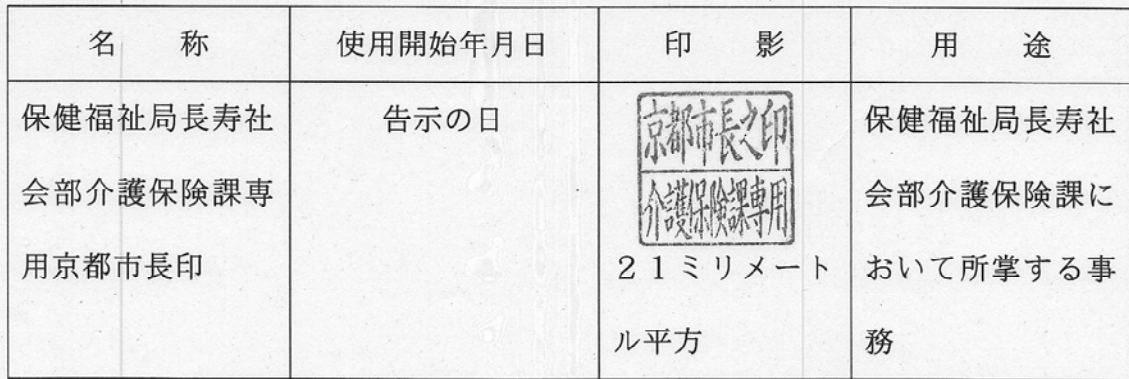 名　称
使用開始年月日
印　影
用　途
保健福祉局長寿社
会部介護保険課専
用京都市長印
告示の日
京都市長之印
介護保険課専用
２１ミリメート
ル平方
保健福祉局長寿社
会部介護保険課に
おいて所掌する事
務